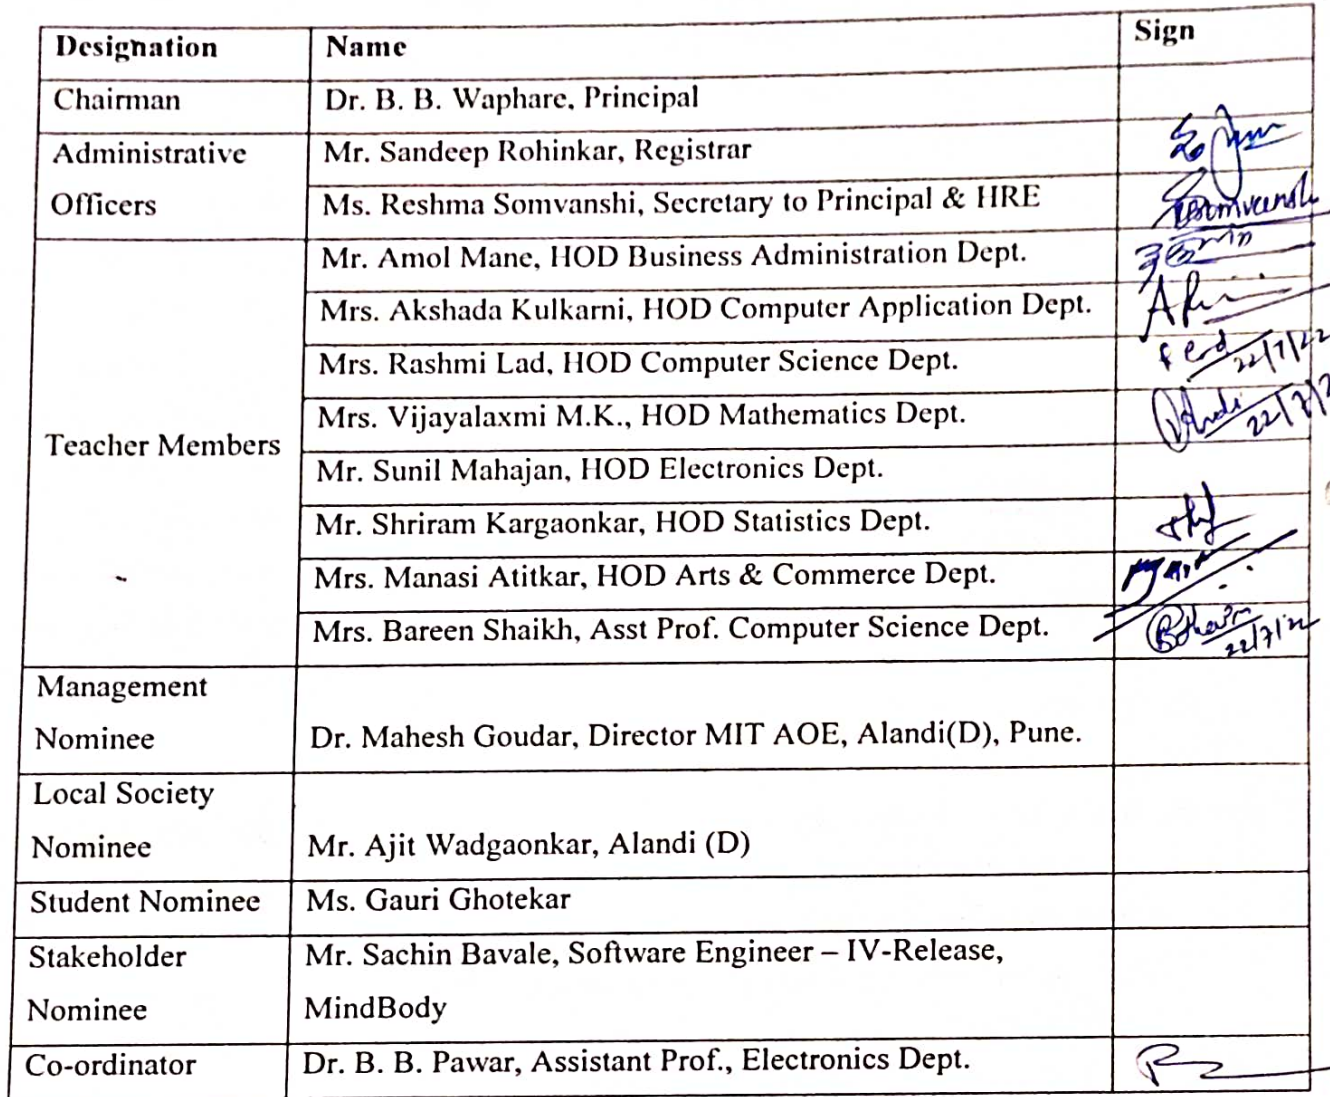 Designation Name Sign
Chairman Dr. B. B. Waphare, Principal
Administrative Officers Mr. Sandeep Rohinkar, Registrar
Ms. Reshma Somvanshi, Secretary to Principal & HRE
Teacher Members Mr. Amol Mane, HOD Business Administration Dept.
Mrs. Akshada Kulkarni, HOD Computer Application Dept.
Mrs. Rashmi Lad, HOD Computer Science Dept. 22/7/22
Mrs. Vijayalaxmi M.K., HOD Mathematics Dept.
Mr. Sunil Mahajan, HOD Electronics Dept.
Mr. Shriram Kargaonkar, HOD Statistics Dept.
Mrs. Manasi Atitkar, HOD Arts & Commerce Dept.
Mrs. Bareen Shaikh, Asst Prof. Computer Science Dept. 22/7/22
Management
Nominee Dr. Mahesh Goudar, Director MIT AOE, Alandi(D), Pune.
Local Society
Nominee Mr. Ajit Wadgaonkar, Alandi (D)
Student Nominee Ms. Gauri Ghotekar
Stakeholder Mr. Sachin Bavale, Software Engineer – IV-Release,
Nominee MindBody
Co-ordinator Dr. B. B. Pawar, Assistant Prof., Electronics Dept.